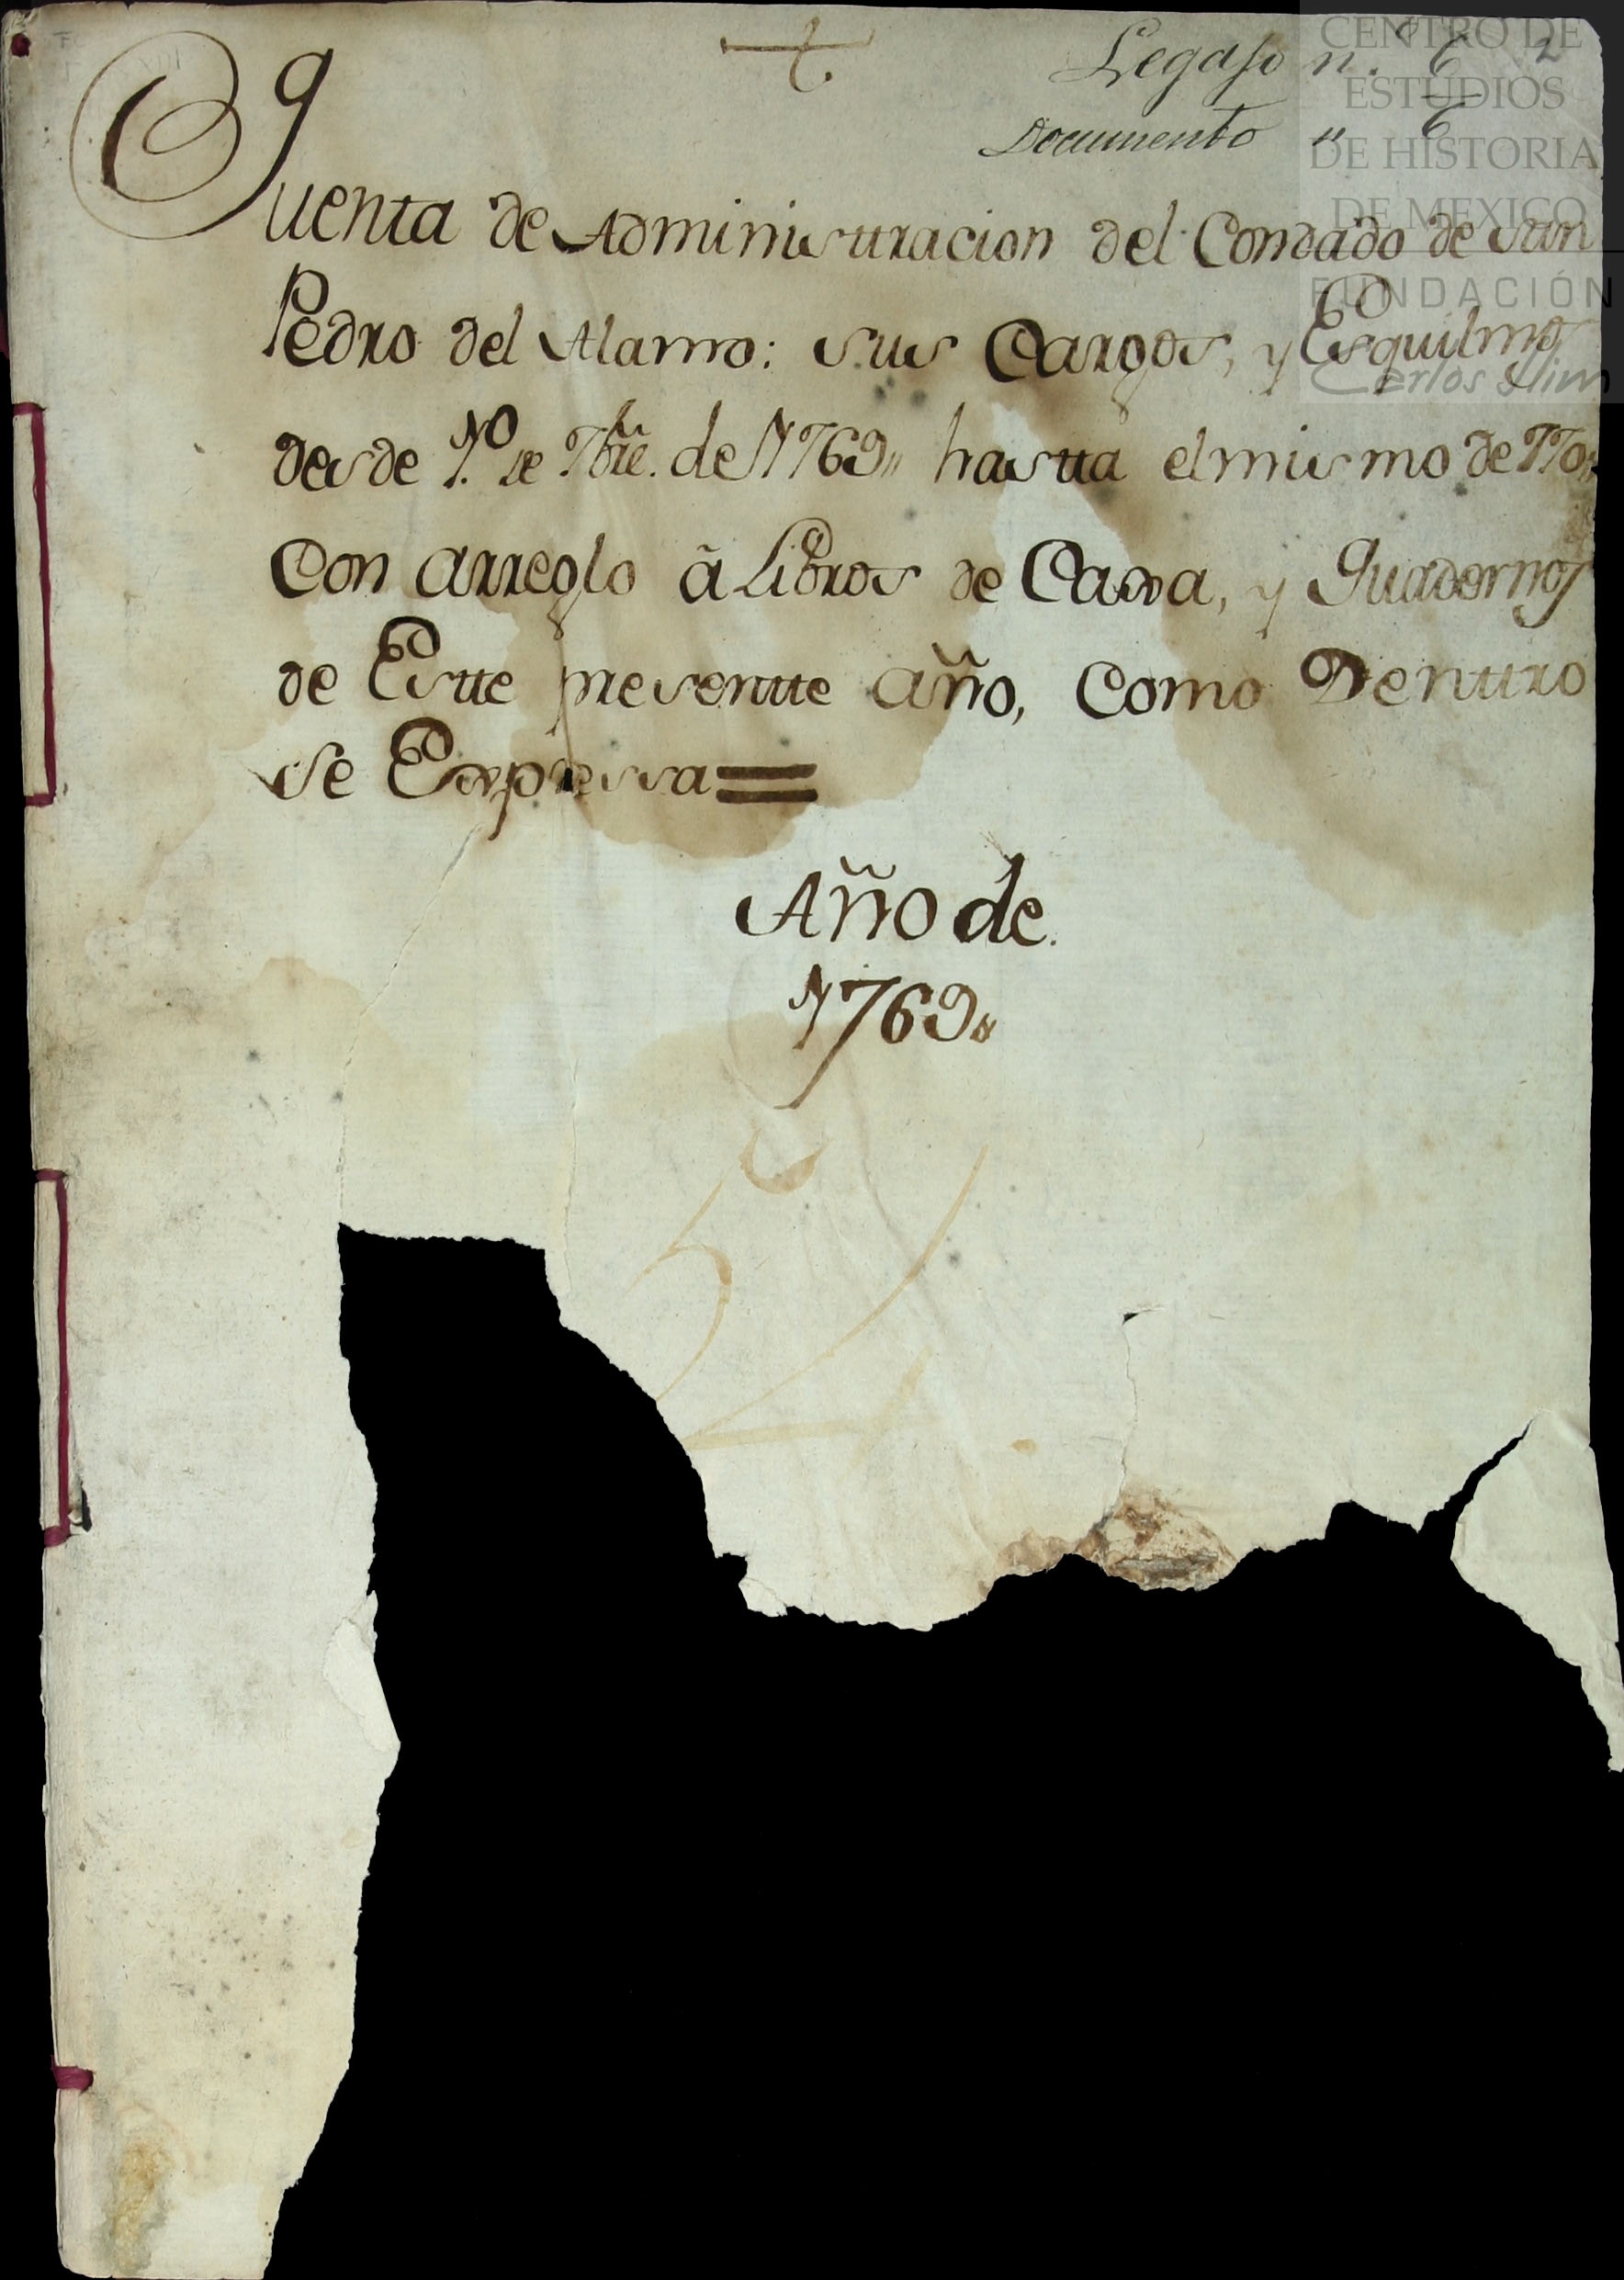 Legajo n. 6 2
Documento " 6
Quenta de Administracion del Condado de San
Pedro del Alamo: sus Cargos, y Esquilmos
desde 1.º de 7bre. de 1769,, hasta el mismo de 770,,
Con arreglo â Libros de Caxa, y Quadernos
de Este presentte año, Como Dentro
se Expressa=
Año de.
1769,,
CENTRO DE
ESTUDIOS
DE HISTORIA
DE MEXICO
FUNDACIÓN
Carlos Slim